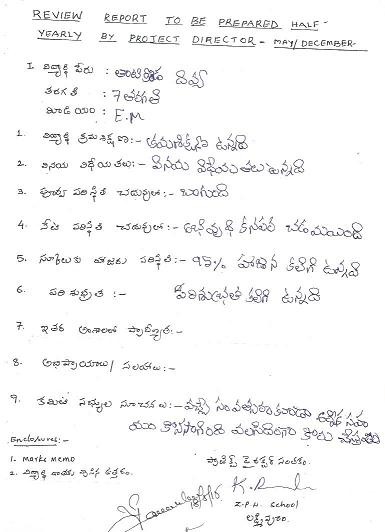 REVIEW REPORT TO BE PREPARED HALF-
YEARLY BY PROJECT DIRECTOR - MAY/DECEMBER-
I. విద్యార్థి పేరు : దివ్య
తరగతి : 7 తరగతి
మీడియం : E.M
1. విద్యార్థి క్రమశిక్షణ :- క్రమశిక్షణ ఉన్నది
2. వినయ విధేయతలు :- వినయ విధేయతలు ఉన్నది
3. పూర్వ పరిస్థితి చదువులో :- బాగుంది
4. నేటి పరిస్థితి చదువులో :- అభివృద్ధి కనపర చడమయింది
5. స్కూలుకు హాజరు పరిస్థితి :- 95% హాజరు కలిగి ఉన్నది
6. పరిశుభ్రత :- పరిశుభ్రత కలిగి ఉన్నది
7. ఇతర అంశాలలో ప్రావీణ్యత :-
8. అభిప్రాయాలు / సలహాలు :-
9. కమిటి సభ్యుల సూచనలు :- వచ్చే సంవత్సరం కూడా ఆర్థిక సహా
యం కొనసాగించ వలసిందిగా కోరు చున్నాము
Enclosures:-
1. Marks Memo
2. విద్యార్థి రాసిన ఉత్తరం.
ప్రాజెక్ట్ డైరెక్టర్ సంతకం.
Z.P.H. School